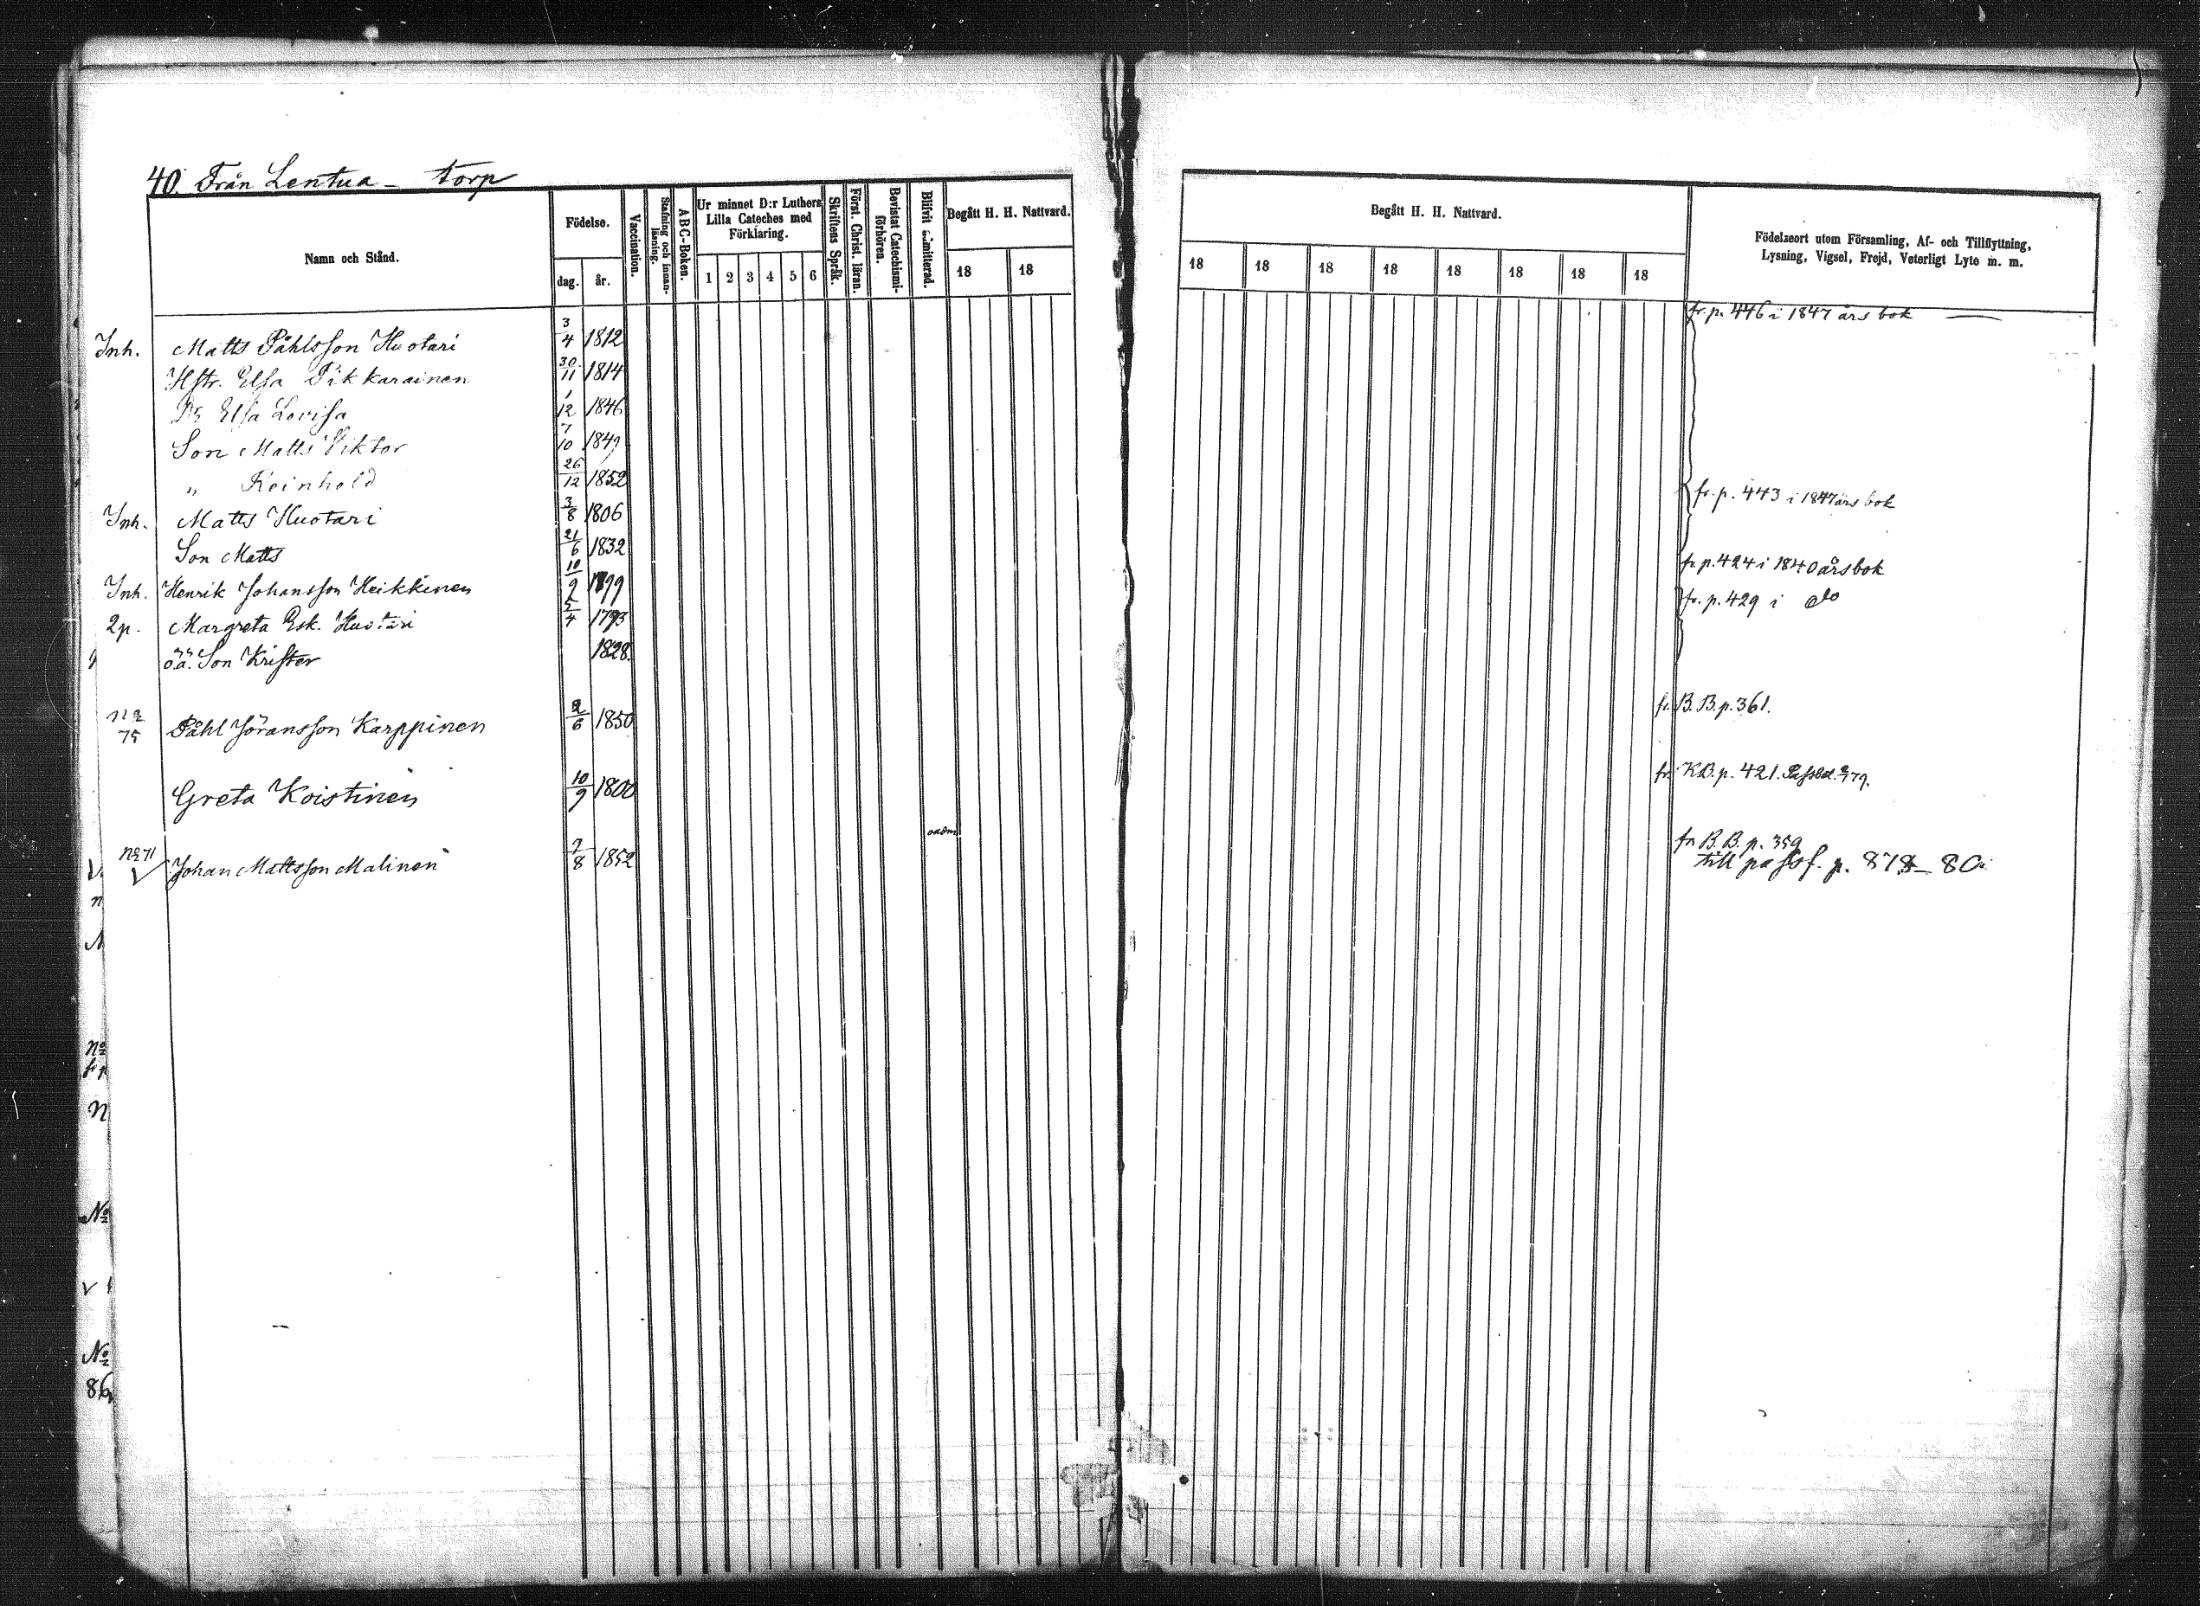 40. Från Lentua - torp
Namn och Stånd.
Födelse.
dag.
år.
Vaccination.
Stafning och innan-läsning.
ABC-Boken.
Ur minnet D:r Luthers
Lilla Cateches med
Förklaring.
1 2 3 4 5 6
Skriftens Språk.
Först. Christ. läran.
Bevistat Catechismi-förhören.
Blifvit admitterad.
Begått H. H. Nattvard.
18 18
Begått H. H. Nattvard.
18 18 18 18 18 18 18 18
Födelseort utom Församling, Af- och Tillflyttning,
Lysning, Vigsel, Frejd, Veterligt Lyte m. m.
Inh. Matts Påhlsson Huotari 3/4 1812 fr. p. 446 i 1847 års bok
Hstr. Elsa Pikkarainen 30/11 1814
Dr Elsa Lovisa 1/12 1846
Son Matts Viktor 7/10 1849
" Reinhold 26/12 1852
Inh. Matts Huotari 3/8 1806 fr. p. 443 i 1847 års bok
Son Matts 21/6 1832
Inh. Henrik Johansson Heikkinen 10/9 1799 fr p. 424 i 1840 årsbok
2p. Margreta Esk. Huotari 5/4 1793 fr. p. 429 i do
o.ä. Son Krister 1828.
No 75 Påhl Jöransson Karppinen 2/6 1850 fr. B. B. p. 361.
Greta Koistinen 10/9 1800 fr. K.B. p. 421.
No 71 Johan Mattsson Malinen 7/8 1852 oadm fr B. B. p. 359
till passf. p. 878 - 80